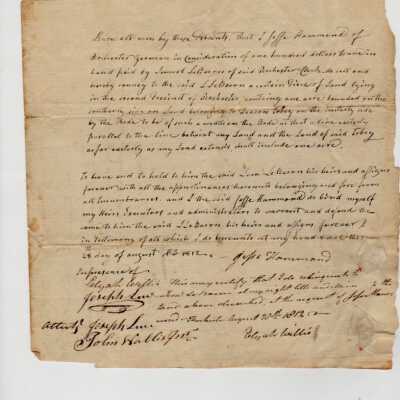 Know all men by these Presents, that I Jesse Hammond of
Rochester Yeoman in Consideration of one hundred dollars to me in
hand paid by Lemuel LeBaron of said Rochester Clerk, do sell and
hereby convey to the said L. LeBaron a certain Piece of Land lying
in the second Precinct of Rochester containing one acre bounded on the
southerly side on Land belonging to Tobey on the westerly side
by the Rode to be of such a width on the Rode as that a line easterly
parallel to the line betwixt my Land and the Land of said Tobey
as far easterly as my Land extends shall include one acre.
To have and to hold to him the said Lem LeBaron his heirs and assigns
forever with all the appurtenances thereunto belonging and free from
all Incumbrances. and I the said Jesse Hammond do bind myself
my Heirs Executors and administrators to warrant and defend the
same to him the said LeBaron his heirs and assigns forever
in testimony of all which I do hereunto set my hand this
28 day of august 1812
Jesse Hammond
In presence of
Elijah Willis
Joseph
This may certify that I do relinquish to
LeBaron all my right title and claim to the
land above described, at the request of Jesse Hammond
Rochester August 28th 1812
Elijah Willis
Attest Joseph
John